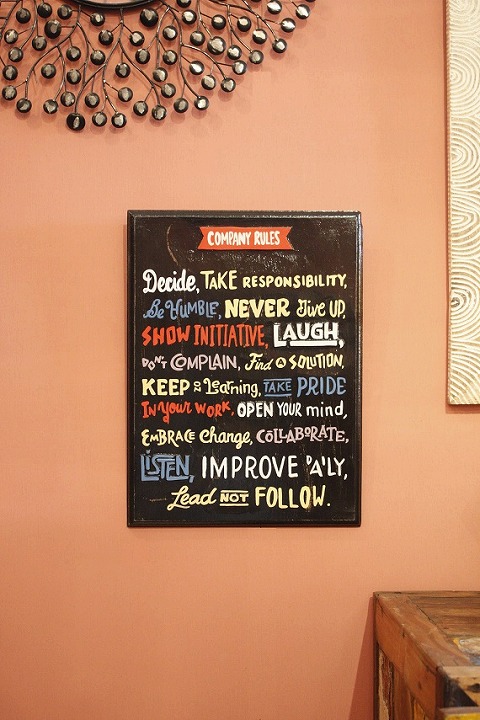 COMPANY RULES
Decide, TAKE RESPONSIBILITY,
Be HUMBLE, NEVER Give UP,
SHOW INITIATIVE, LAUGH,
DON'T COMPLAIN, Find A SOLUTION,
KEEP on Learning, TAKE PRIDE
In Your WORK, OPEN YOUR mind,
EMBRACE change, COLLABORATE,
LISTEN, IMPROVE DA'LY,
Lead NOT FOLLOW.